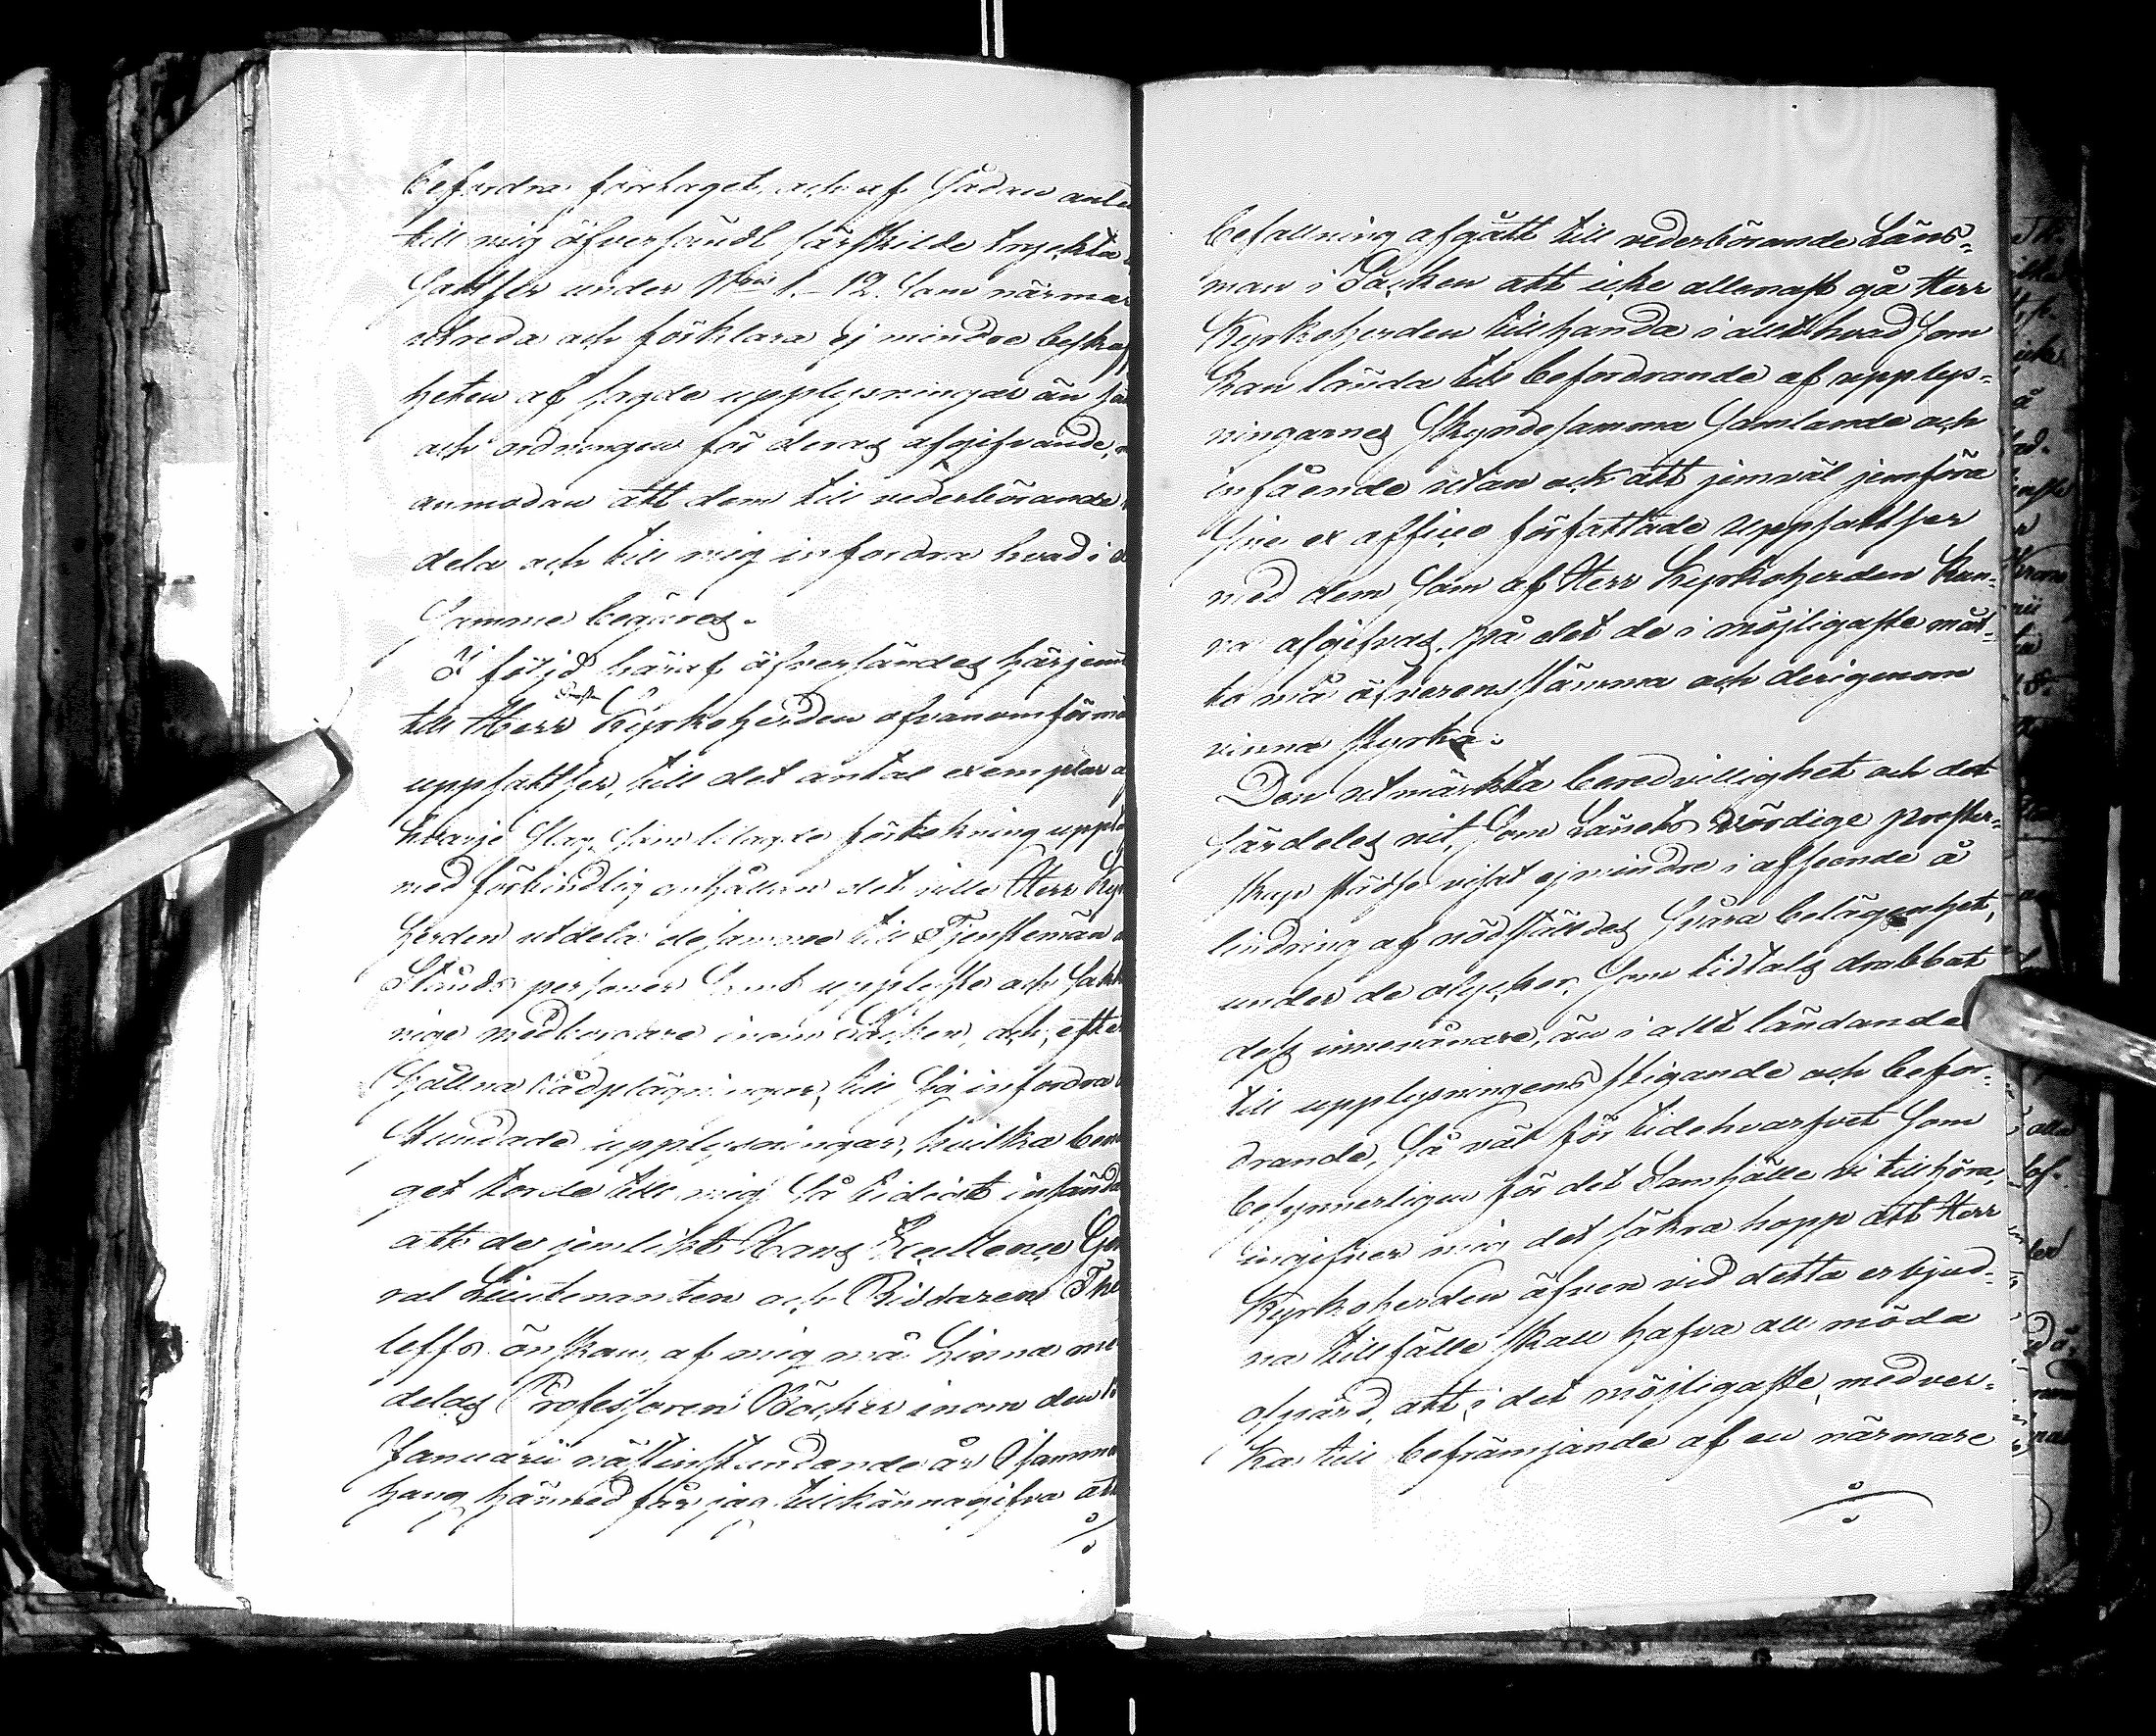 befordra företaget, och af Sådan anle
till mig öfversändt särskilde tryckta
Sattser under N:ris 1.–12. Som närmar
utreda och förklara ej mindre beskaf
heten af sagde upplysningar än sä
och ordningen för deras afgifvande,
anmodan att dem till vederbörande
dela och till mig infordra hvad i
Samme begäres.
I följd häraf öfversändes härjem
till Herr Prosten Kyrkoherden ofvanomförmä
uppsattser, till det antal exemplar a
hvarje Slag, Som bilagde förtekning uppta
med förbindlig anhållan det ville Herr Kyr
herden utdela desamme till Tjenstemän
Stånds personer Samt upplyste och Sakk
nige medborgare inom Socken, och, efter
Stundade upplysningar, hvilka ben
get torde till mig Så tidigt insända
att de jemlikt Hans Excellence Gen
ral Lieutenanten och Riddaren The
leffs önskan, af mig må hinna me
delas Professoren Böcker inom den
Januarii nästinstundande år. I samma
hang härmed får jag tillkännagifva att
befallning afgått till vederbörande Läns-
man i Socken att icke allenast gå Herr
Kyrkoherden tillhanda i allt hvad Som
kan lända till befordrande af upplys-
ningarnes Skyndesamma Samlande och
infående utan ock att jemväl jemföra
Sine ex officio författade Uppsattser
med dem Som af Herr Kyrkoherden kun-
na afgifvas, på det de i möjligaste måt-
to må öfverensstämma och derigenom
vinna styrka.
Den utmärkta beredvillighet och det
Särdeles nit, Som Länets Vördige prester-
skap städse visat ej mindre i afseende å
lindring af nödställdes Svåra belägenhet,
under de olyckor, Som tidtals drabbat
dess innevånare, än i allt ländande
till upplysningens stigande och befor-
drande, Så väl för tidehvarfvet Som
besynnerligen för det Samhälle vi tillhöra,
ingifver mig det säkra hopp att Herr
Kyrkoherden äfven vid detta erbjud-
na tillfälle skall hafva all möda
ospard, att i det möjligaste, medver-
ka till befrämjande af en närmare